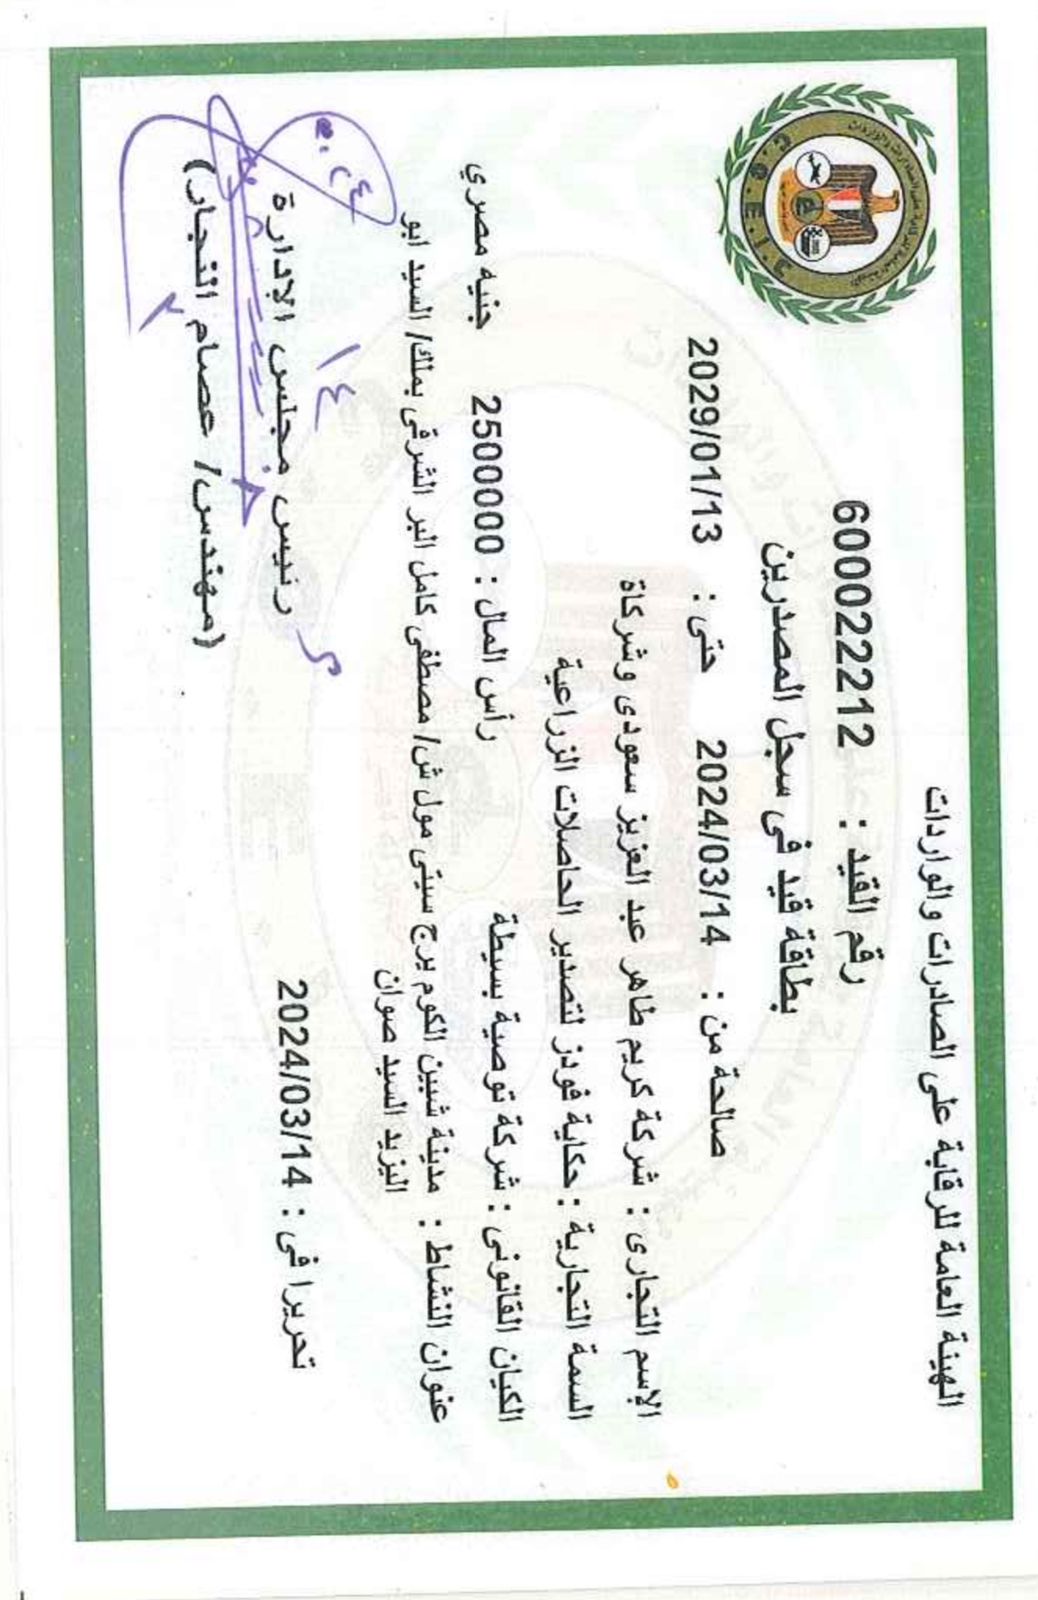 الهيئة العامة للرقابة على الصادرات والواردات
رقم القيد : 600022212
بطاقة قيد فى سجل المصدرين
صالحة من : 2024/03/14 حتى : 2029/01/13
الاسم التجارى : شركة كريم طاهر عبد العزيز سعودى وشركاة
السمة التجارية : حكاية فودز لتصدير الحاصلات الزراعية
الكيان القانونى : شركة توصية بسيطة رأس المال : 2500000 جنيه مصري
عنوان النشاط : مدينة شبين الكوم برج سيتى مول ش/ مصطفى كامل البر الشرقى بملك/ السيد ابو
اليزيد السيد صوان
تحريرا فى : 2024/03/14
رئيس مجلس الإدارة
(مهندس/ عصام النجار)
G.O.E.I.C